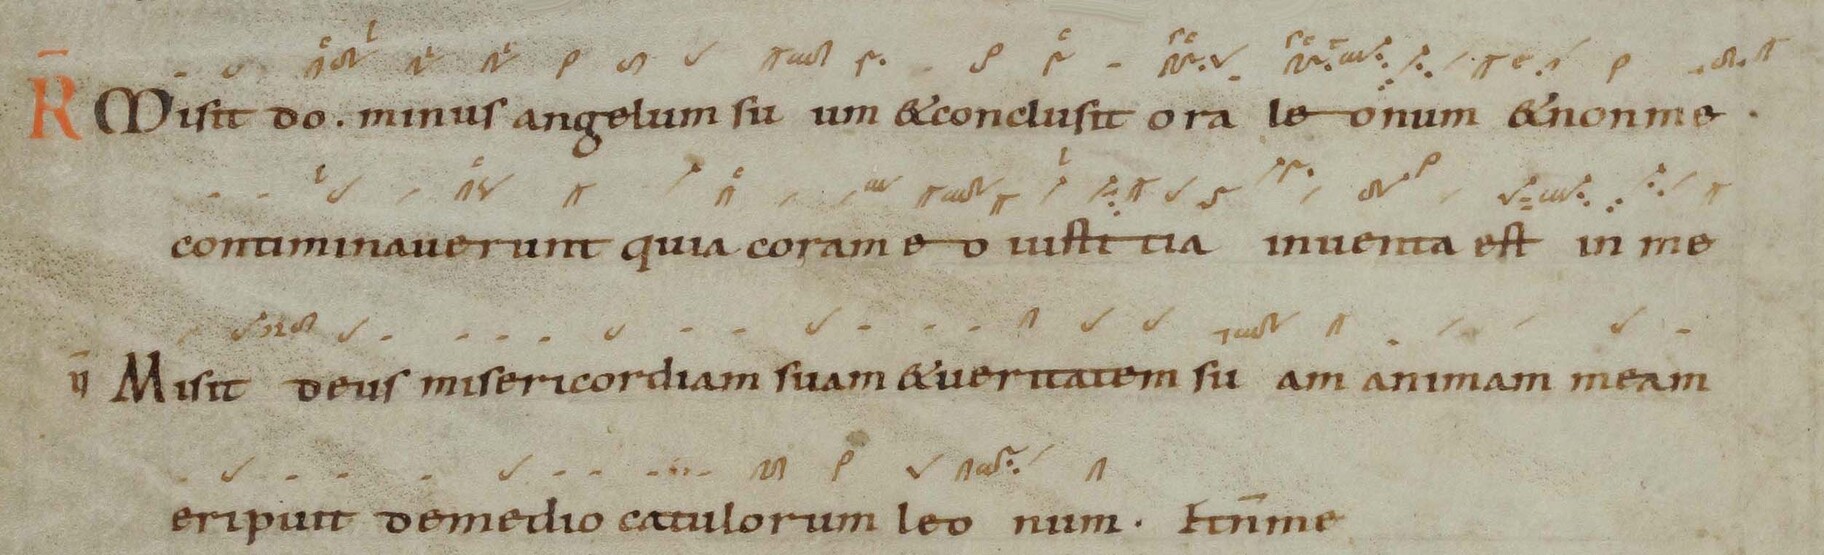 R̄ Misit do. minus angelum su um & conclusit ora le onum & non me.
contiminauerunt quia coram eo iusti tia inuenta est in me
v̄ Misit deus misericordiam suam & ueritatem su am animam meam
eripuit de medio catulorum leo num. Et n̄ me